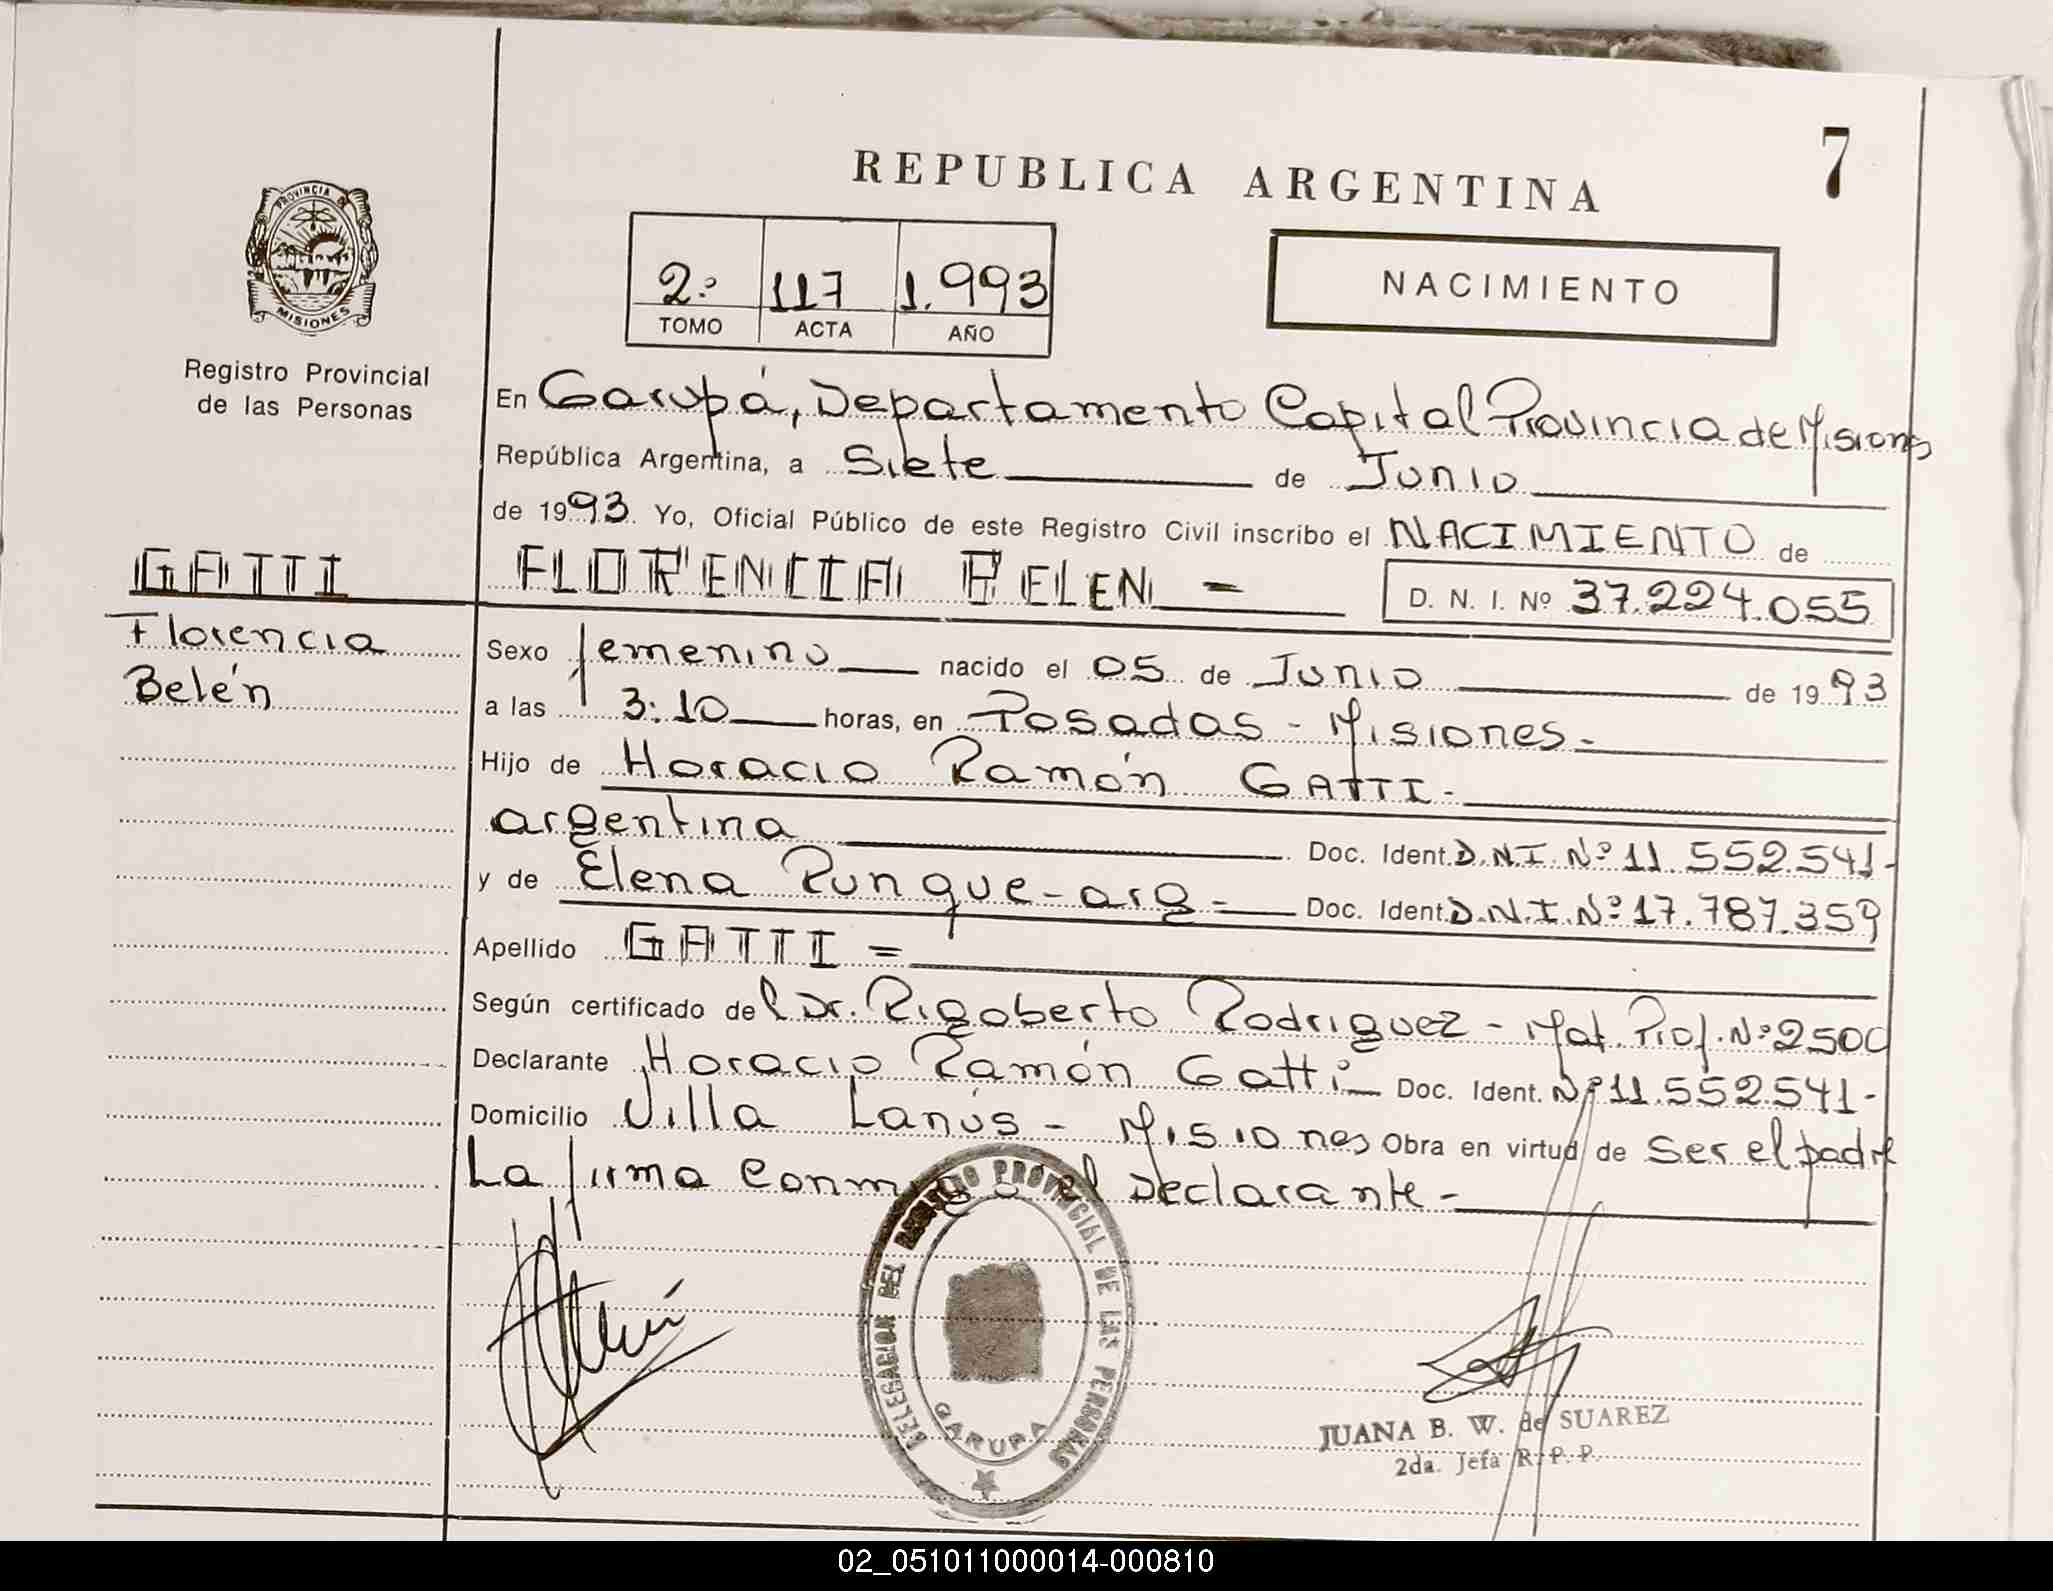 7
REPUBLICA ARGENTINA
PROVINCIA DE
MISIONES
Registro Provincial
de las Personas
2º 117 1.993
TOMO ACTA AÑO
NACIMIENTO
En Garupá, Departamento Capital Provincia de Misiones
República Argentina, a Siete de Junio
de 1993. Yo, Oficial Público de este Registro Civil inscribo el NACIMIENTO de
GATTI FLORENCIA BELEN = D. N. I. Nº 37.224.055
Florencia
Belén
Sexo femenino nacido el 05 de Junio de 1993
a las 3:10 horas, en Posadas - Misiones.
Hijo de Horacio Ramón GATTI.
argentina Doc. Ident. D.N.I. Nº 11.552.541-
y de Elena Runque - arg - Doc. Ident. D.N.I. Nº 17.787.359
Apellido GATTI =
Según certificado del Dr. Rigoberto Rodriguez - Mat. Prof. Nº 2500
Declarante Horacio Ramón Gatti Doc. Ident. Nº 11.552.541-
Domicilio Villa Lanús - Misiones Obra en virtud de Ser el padre
La firma conmigo el Declarante -
DELEGACION DEL REGISTRO PROVINCIAL DE LAS PERSONAS
GARUPA
JUANA B. W. de SUAREZ
2da. Jefa R. P. P.
02_051011000014-000810